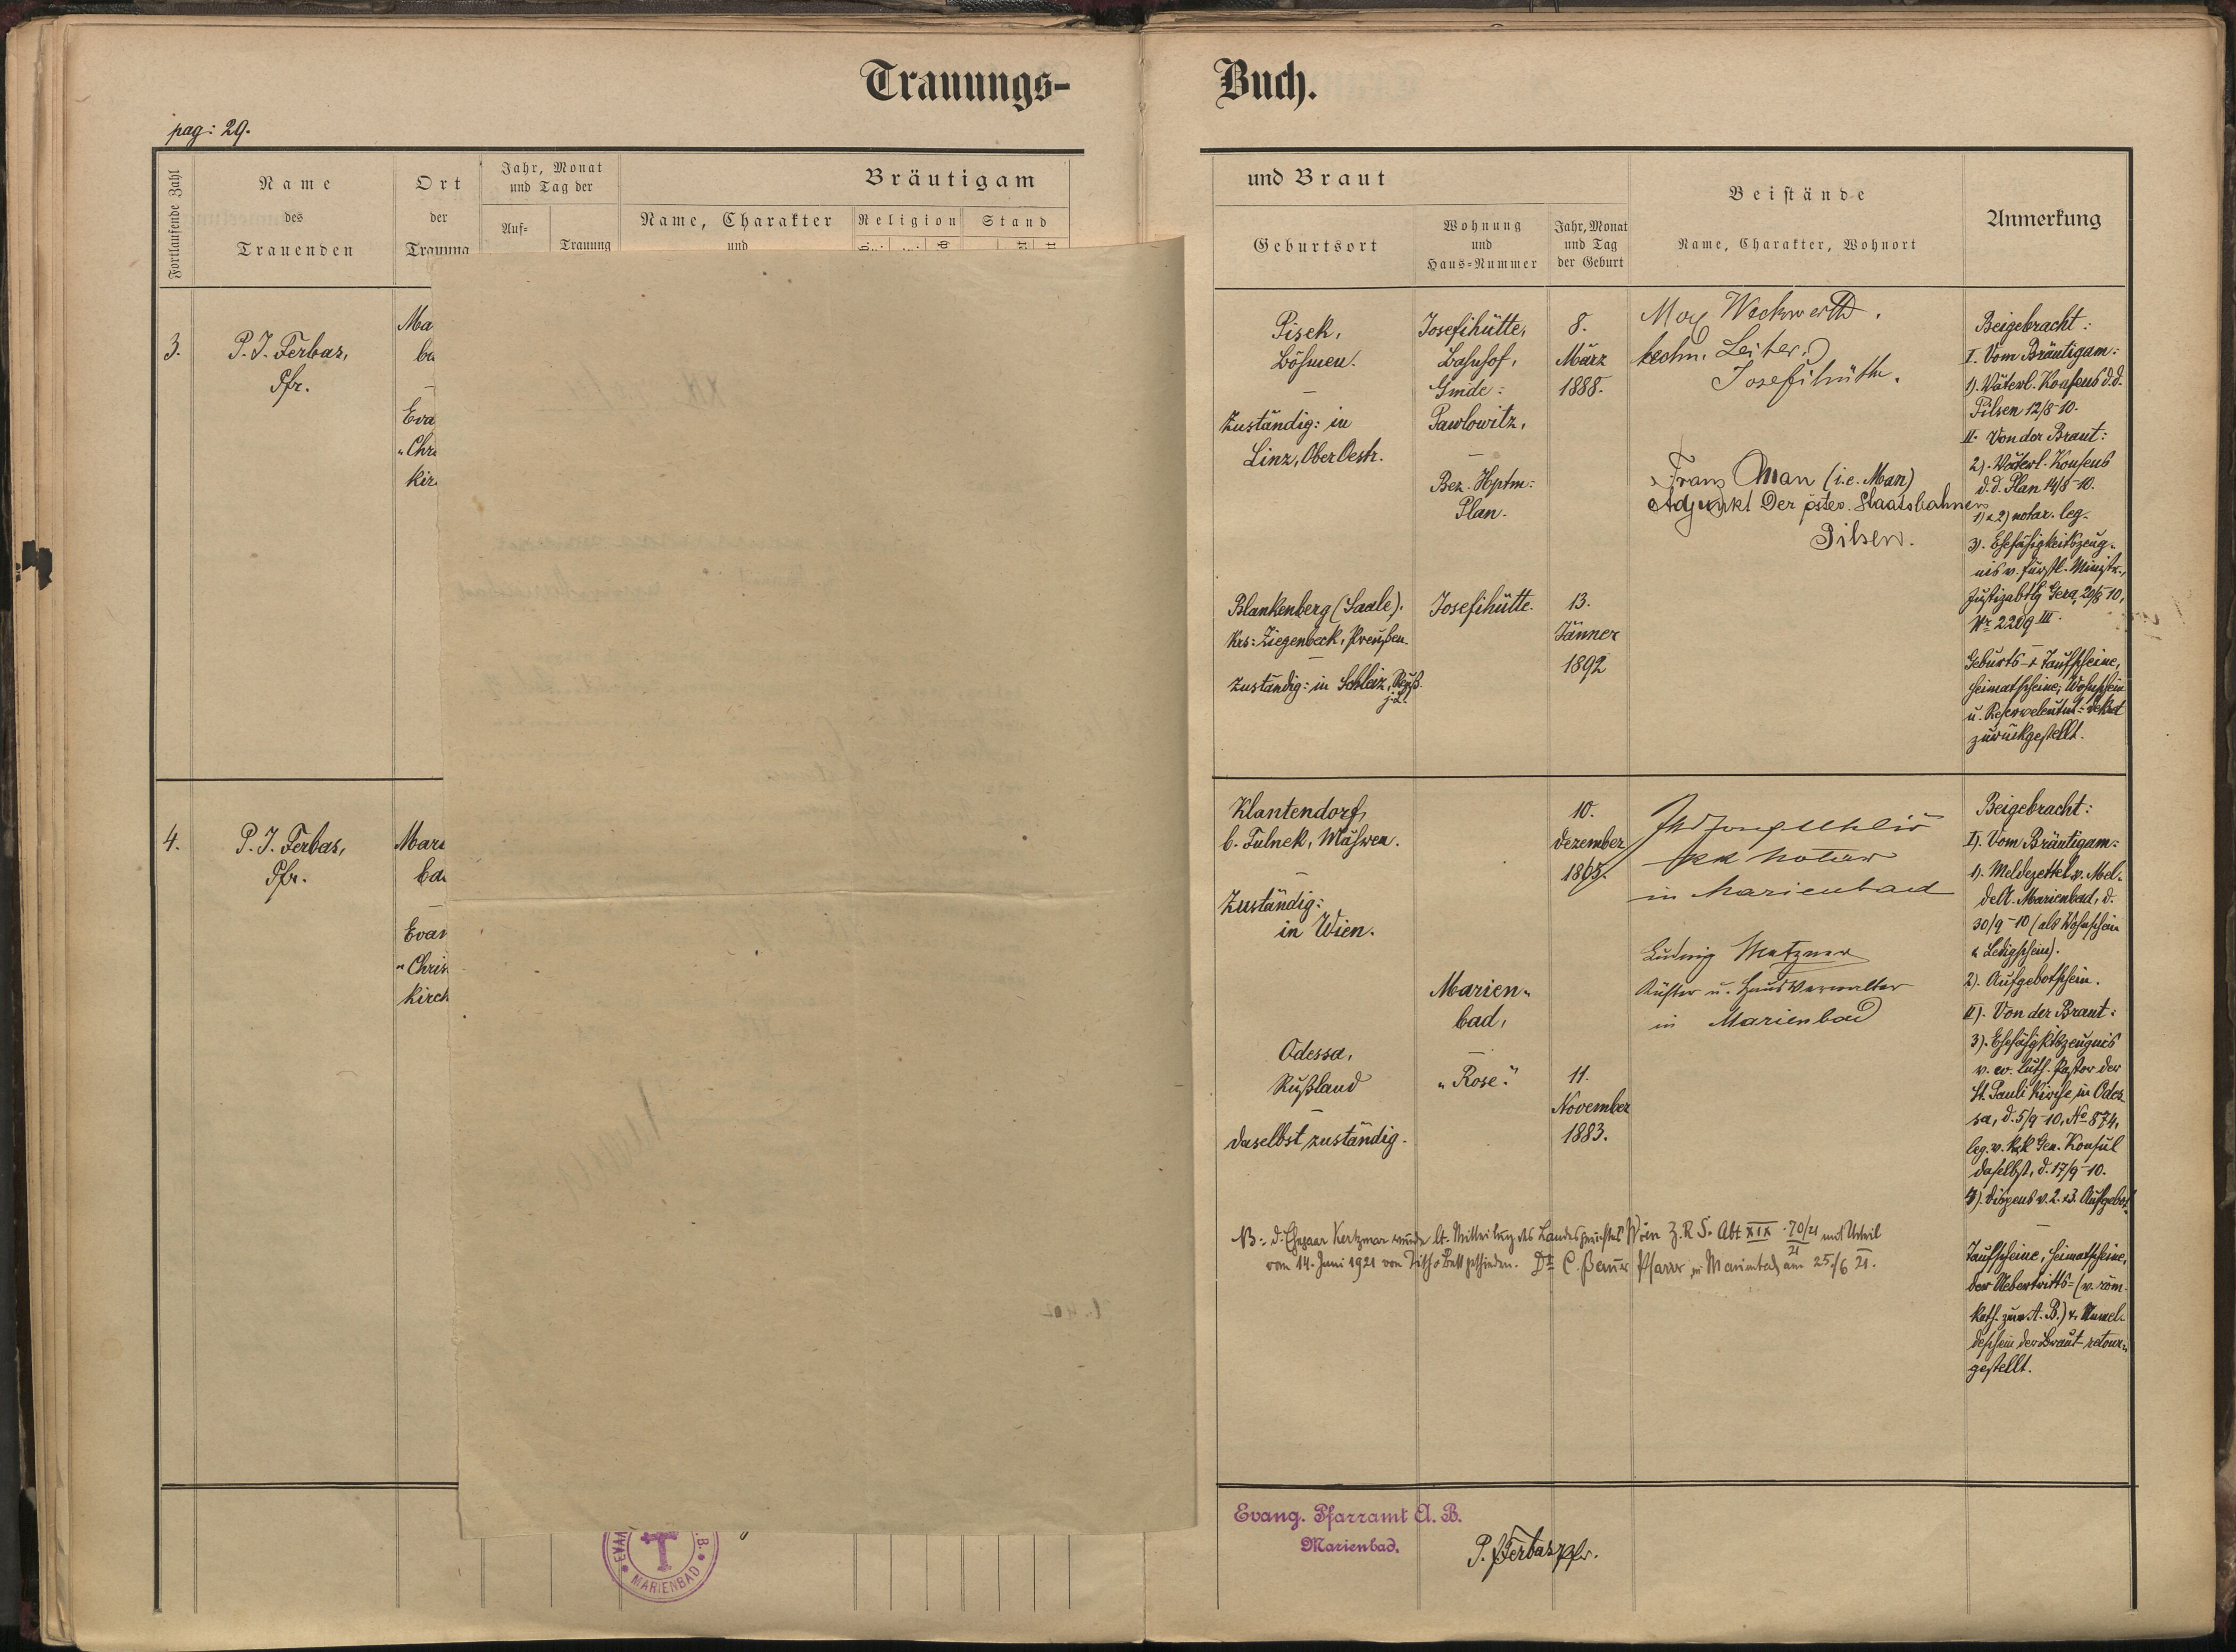 Trauungs-
Buch.
pag: 29.
Fortlaufende Zahl
Name
des
Trauenden
Ort
der
Trauung
Jahr, Monat
und Tag der
Auf-
Trauung
Bräutigam
Name, Charakter
und
Religion
Stand
und Braut
Geburtsort
Wohnung
und
Haus-Nummer
Jahr, Monat
und Tag
der Geburt
Beistände
Name, Charakter, Wohnort
Anmerkung
3.
P. J. Ferbas,
Pfr.
Ma
ba
Eva
"Chri
kirc
Pisek,
Böhmen.
Zuständig: in
Linz, OberOestr.
Josefihütte,
Bahnhof,
Gmde:
Pawlowitz,
Bez. Hptm:
Plan.
8.
März
1888.
Max Weckwerth.
techn. Leiter.
Josefihütte.
Franz Man (i.e. Man)
Adjunkt Der öster. Staatsbahnen
Pilsen.
Blankenberg (Saale).
Krs: Ziegenbeck, Preußen.
Zuständig: in Schleiz, Reuß
j. L.
Josefihütte.
13.
Jänner
1892
Beigebracht:
I. Vom Bräutigam:
1). Väterl. Konsens d.d.
Pilsen 12/8-10.
II. Von der Braut:
2). Väterl. Konsens
d.d. Plan 14/8-10.
1) & 2) notar. leg.
3). Ehefähigkeitszeug-
nis v. fürstl. Ministr.,
Justizabtlg Gera, 20/8 10,
Nr 2209 III.
Geburts- & Taufscheine,
Heimatscheine, Wohnschein
zurückgestellt.
4.
P. J. Ferbas,
Pfr.
Mari
bad
Evan
"Chris
kirch
Klantendorf,
b. Fulnek, Mähren.
Zuständig:
in Wien.
10.
Dezember
1865.
kk Notar
in Marienbad
Ludwig Metzner
Küster u. Hausverwalter
in Marienbad
Marien-
bad,
"Rose."
Odessa,
Rußland
daselbst zuständig.
11.
November
1883.
Beigebracht:
I). Vom Bräutigam:
1). Meldezettel v. Mel-
deA. Marienbad, d.
30/9-10 (als Wohnschein
& Ledigschein).
2). Aufgebotschein.
II). Von der Braut:
3). Ehefähigktszeugnis
v. ev. luth. Pastor der
St. Pauli Kirche in Odes-
sa, d. 5/9-10, No 874,
leg. v. k&k Gen. Konsul
daselbst, d. 17/9-10.
4). Dispens v. 2. & 3. Aufgebot.
Taufscheine, Heimatscheine,
der Uebertritts- (v. röm.
kath. zur A. B.) & Anmel-
deschein der Braut retour-
gestellt.
NB: d. Ehepaar Kertzmar wurde lt. Mitteilung des Landesgerichtes Wien Z.R.S. Abt XIX 70/21 mit Urteil
21
vom 14. Juni 1921 von Tisch & Bett geschieden. Dr C. Bauer Pfarrer in Marienbad am 25./6 21.
Evang. Pfarramt A. B.
Marienbad.
P. J. Ferbas, Pfr.
EVAN
B.
MARIENBAD